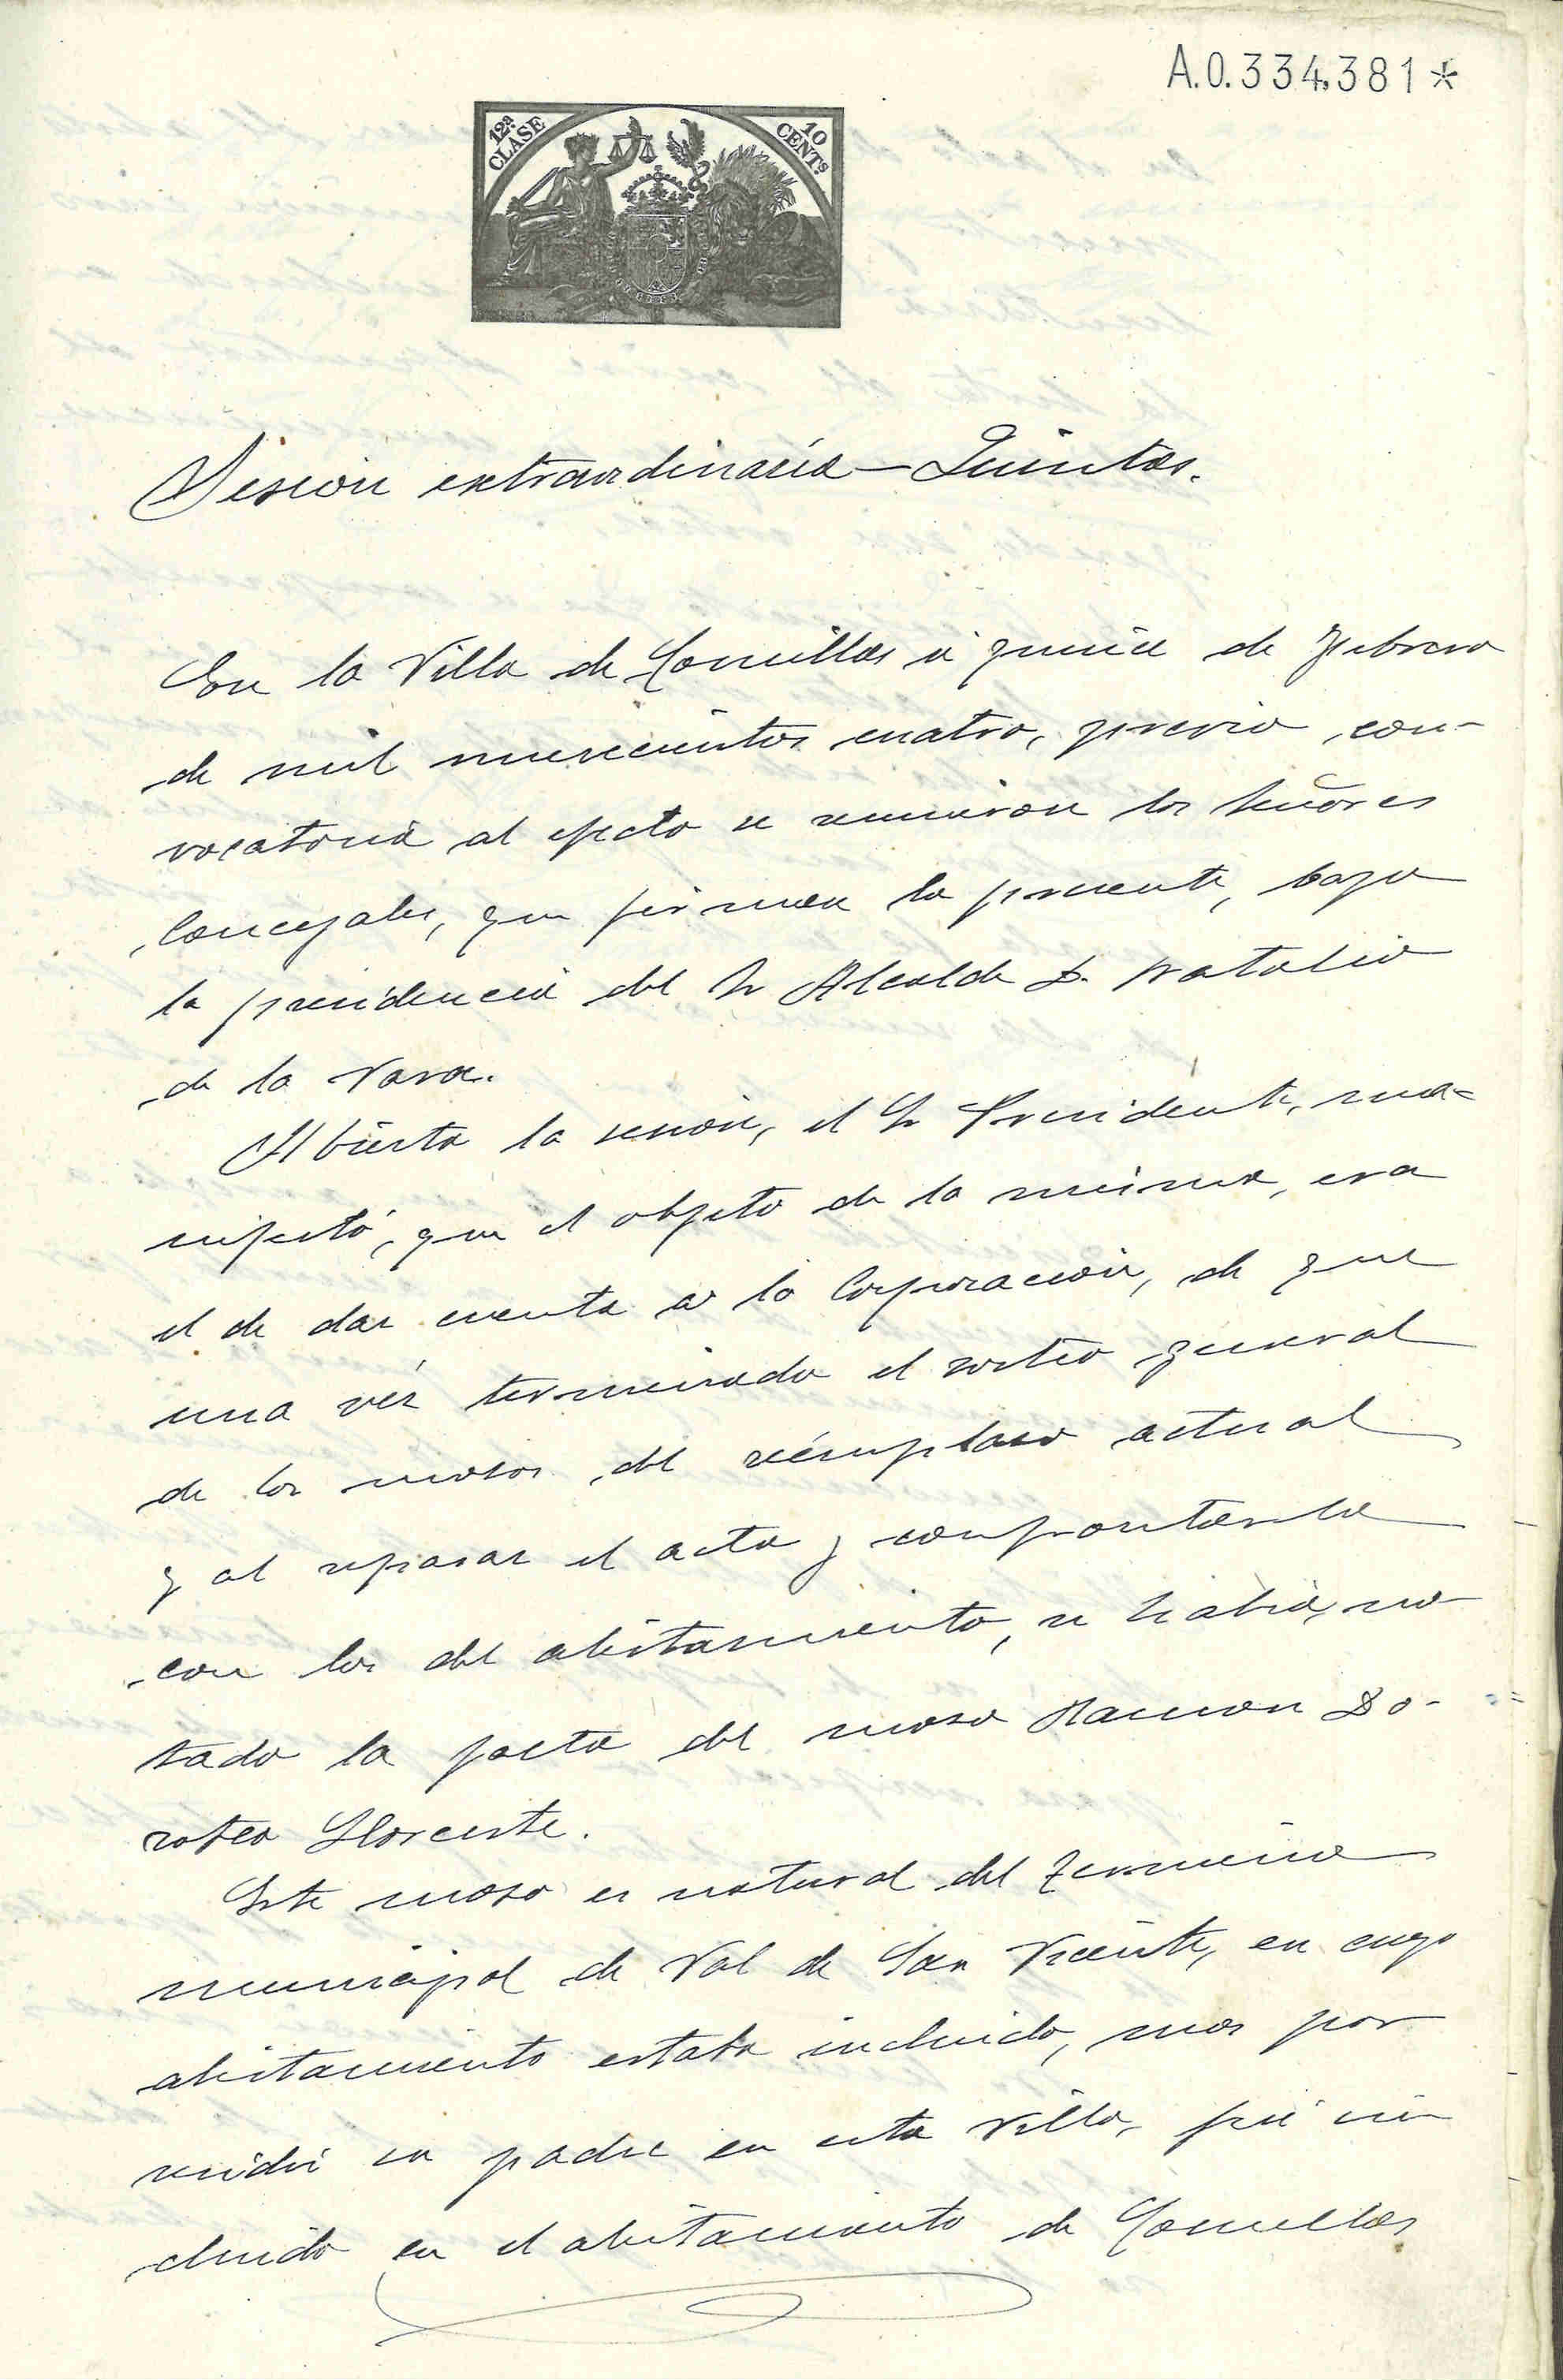 A.0.334.381*
12ª CLASE
10 CENTS
Sesión extraordinaria — Quintas.
En la Villa de Comillas á quince de Febrero
de mil novecientos cuatro, previa con-
vocatoria al efecto se reunieron los Señores
Concejales, que firman la presente, bajo
la presidencia del Sr Alcalde D. Natalio
de la Vara.
Abierta la sesión, el Sr Presidente, ma=
nifestó, que el objeto de la misma, era
el de dar cuenta a la Corporación, de que
una véz terminado el sorteo general
de los mozos del reemplazo actual
y al repasar el acta y confrontarla
con los del alistamiento, se había no-
tado la falta del mozo Ramon Do-
roteo Llorente.
Este mozo es natural del termino
municipal de Val de San Vicente, en cuyo
alistamiento estaba incluido, mas por
residir su padre en esta Villa, fué in-
cluido en el alistamiento de Comillas